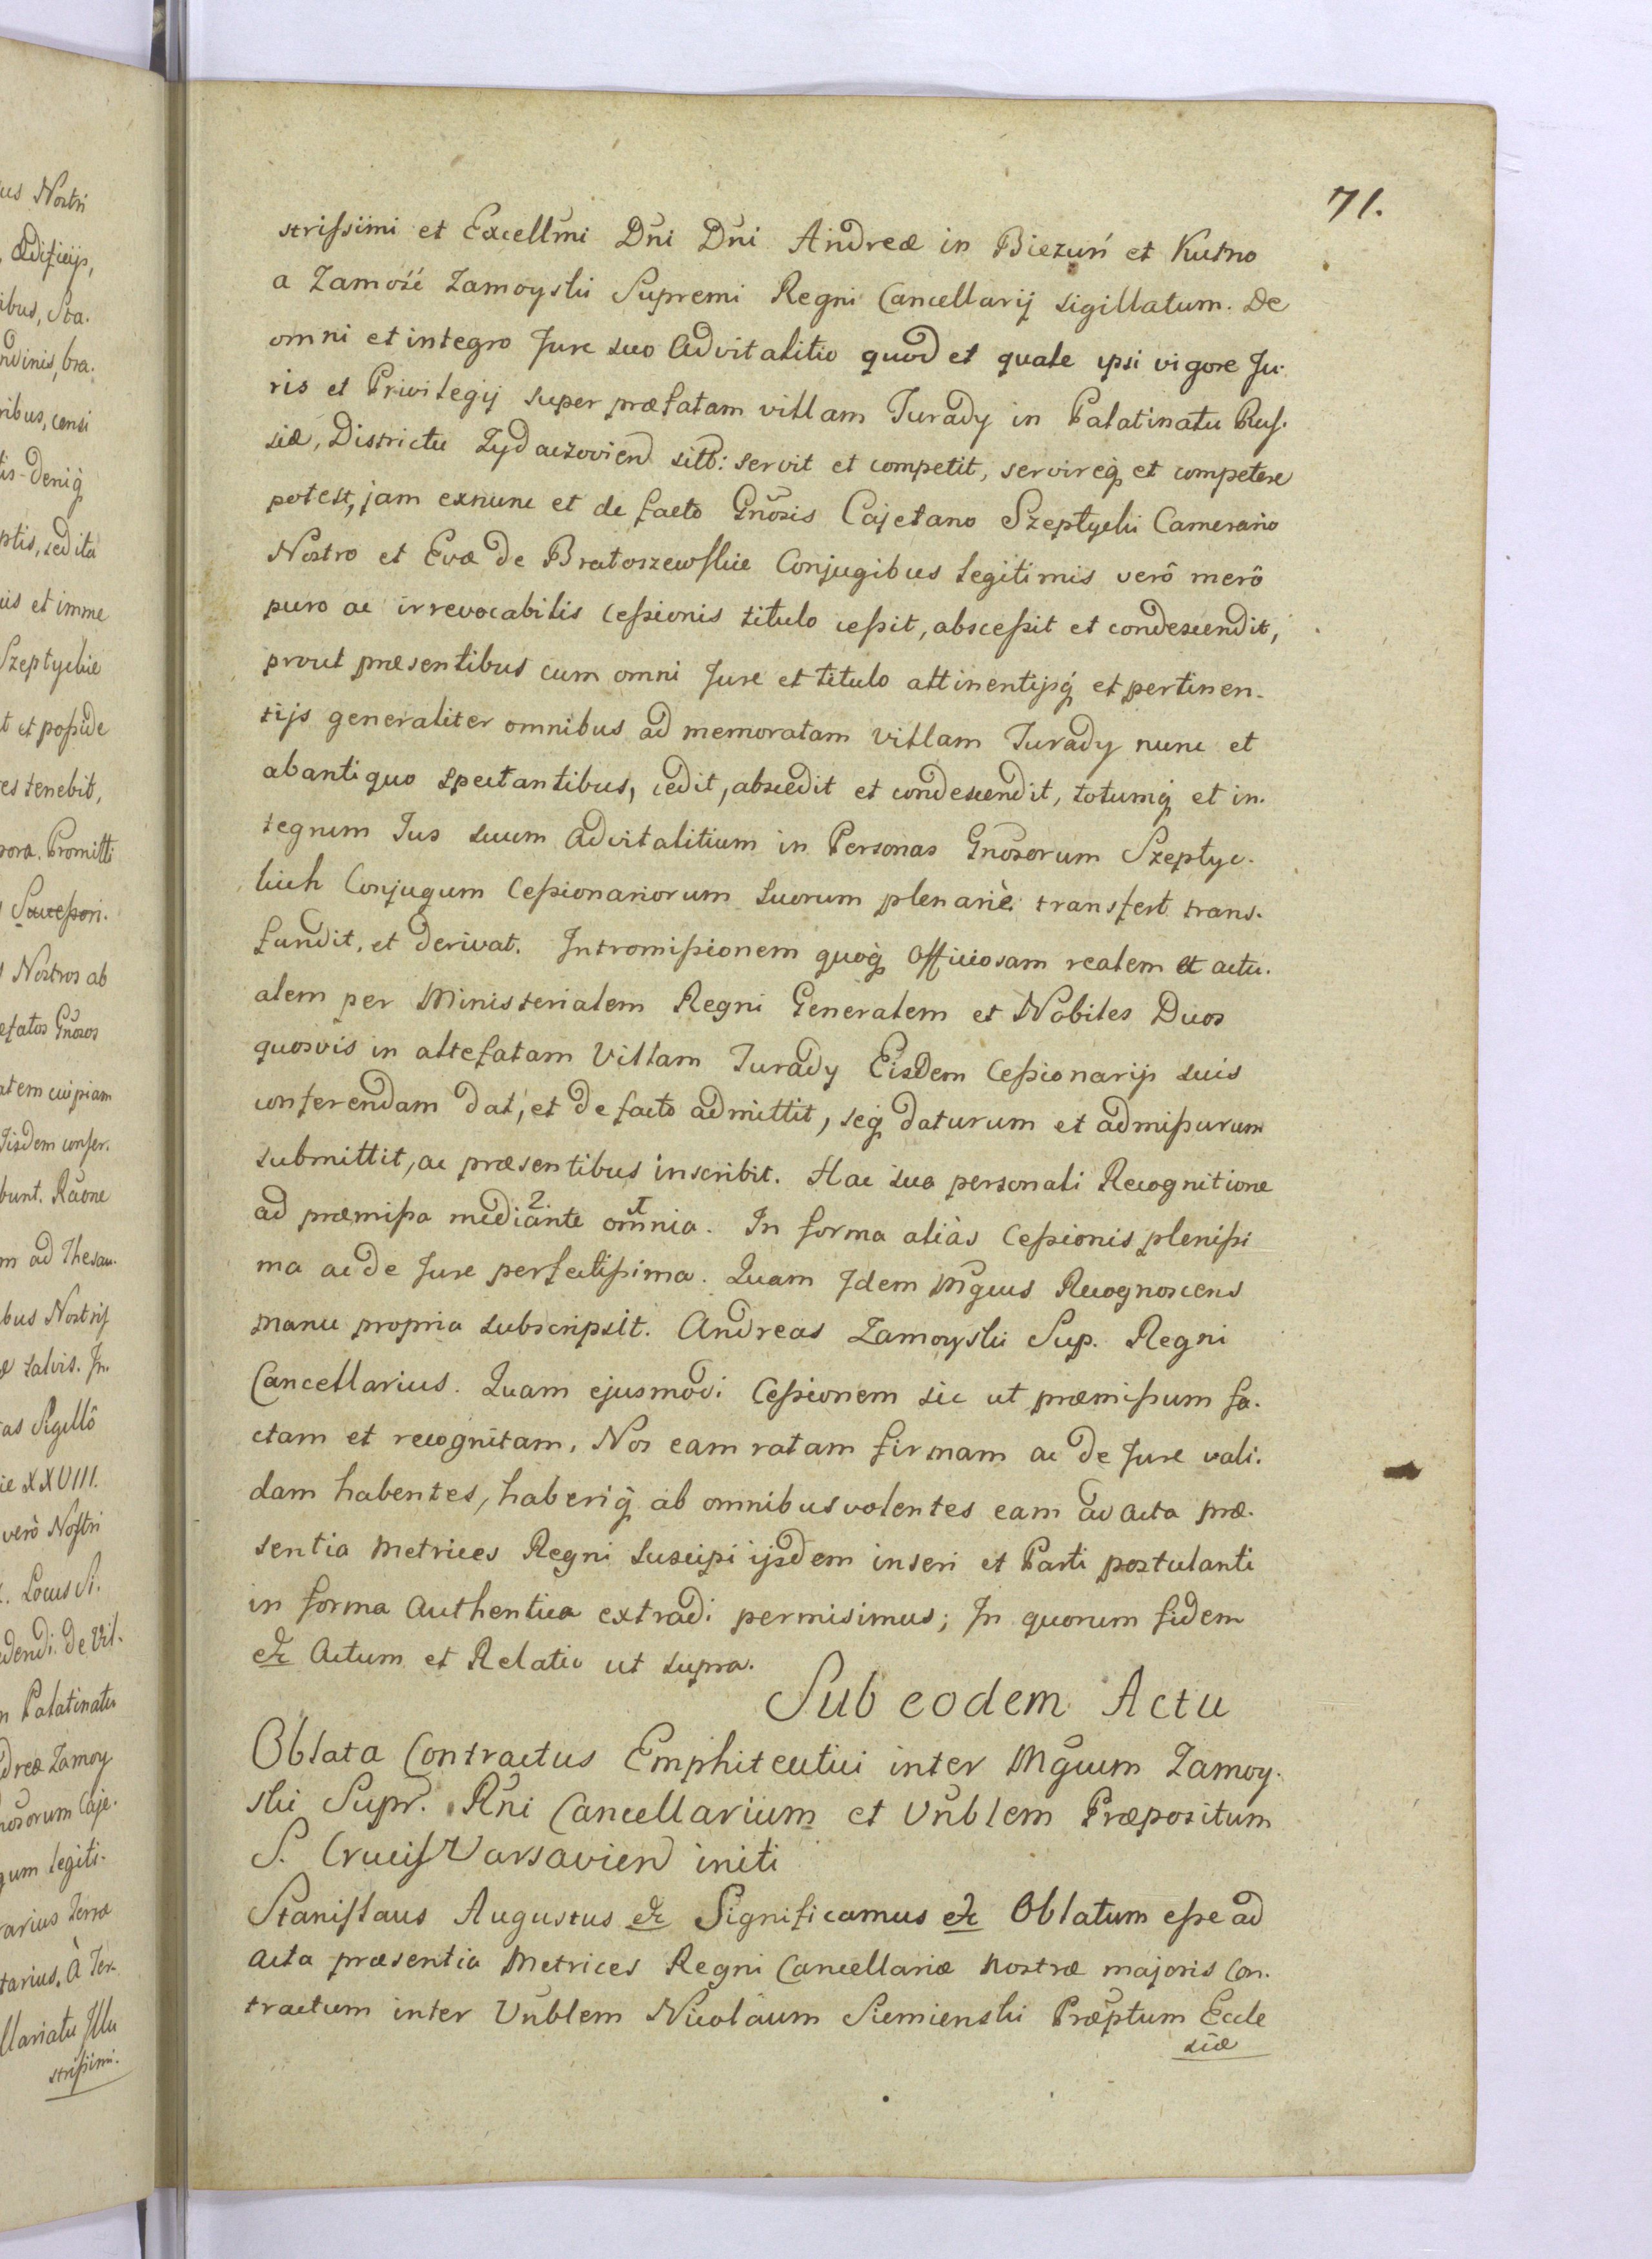 71.
strissimi et Excellm̃i Dñi Dñi Andreæ in Biezuń et Kutno
a Zamość Zamoyski Supremi Regni Cancellarij sigillatum. De
omni et integro Jure suo Advitalitio quod et quale ipsi vigore Ju-
ris et Privilegij super præfatam villam Turady in Palatinatu Rus-
siæ, Districtu Zydaczovien sitt: servit et competit, servireq́ et competere
potest, jam exnunc et de facto Gñosis Cajetano Szeptycki Camerario
Nostro et Evæ de Bratoszewskie Conjugibus legitimis verô merô
puro ac irrevocabilis Cessionis titulo cessit, abscessit et condescendit,
prout præsentibus cum omni Jure et titulo attinentijsq́ et pertinen-
tijs generaliter omnibus ad memoratam Villam Turady nunc et
abantiquo spectantibus, cedit, abscedit et condescendit, totumq́ et in-
tegrum Jus suum Advitalitium in Personas Gñosorum Szeptyc-
kich Conjugum Cessionariorum suorum plenariè transfert trans-
fundit, et derivat. Intromissionem quoq́ Officiosam realem et actu-
alem per Ministerialem Regni Generalem et Nobiles Duos
quosvis in altefatam Villam Turady Eisdem Cessionarijs suis
conferendam dat, et de facto admittit, seq́ daturum et admissurum
submittit, ac præsentibus inscribit. Hac sua personali Recognitione
ad præmissa mediante 2 omnia 1. In forma aliàs Cessionis plenissi
ma ac de Jure perfectissima. Quam Idem Mg̃cus Recognoscens
manu propria subscripsit. Andreas Zamoyski Sup. Regni
Cancellarius. Quam ejusmodi Cessionem sic ut præmissum fa-
ctam et recognitam, Nos eam ratam firmam ac de Jure vali-
dam habentes, haberiq́ ab omnibus volentes eam ad Acta præ-
sentia Metrices Regni suscipi ijsdem inseri et Parti postulanti
in forma Authentica extradi permisimus; In quorum fidem
etc Actum et Relatio ut supra.
Sub eodem Actu
Oblata Contractus Emphiteutici inter Mg̃cum Zamoy-
ski Supr. Rñi Cancellarium et Vñblem Præpositum
S. Crucis Varsavien initi
Stanislaus Augustus etc Significamus etc Oblatum esse ad
Acta præsentia Metrices Regni Cancellariæ Nostræ majoris Con-
tractum inter Vñblem Nicolaum Siemienski Præptum Eccle
siæ